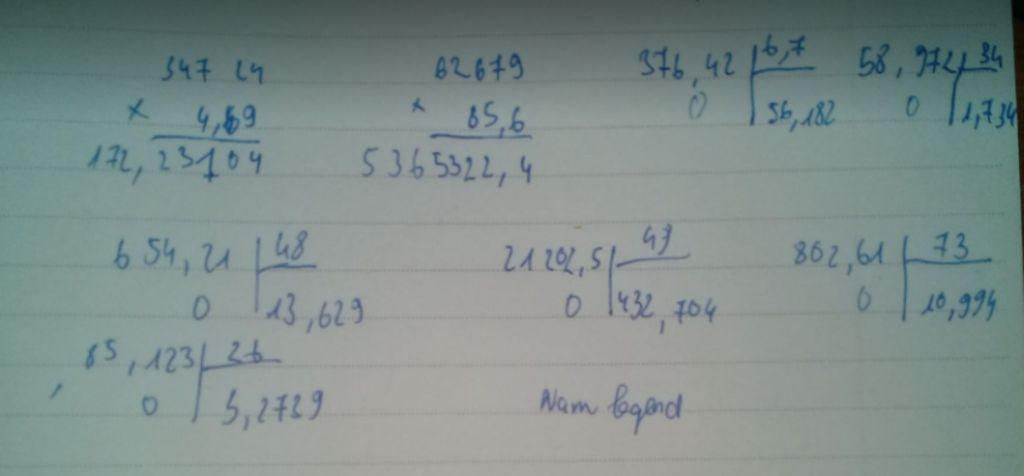 347 24 62679 376,42 6,7 58,972 34
× 4,69 × 85,6 0 56,182 0 1,734
172,23104 5365322,4
654,21 48 21202,5 49 802,61 73
0 13,629 0 432,704 0 10,994
85,123 26
0 3,2739
Nam legend